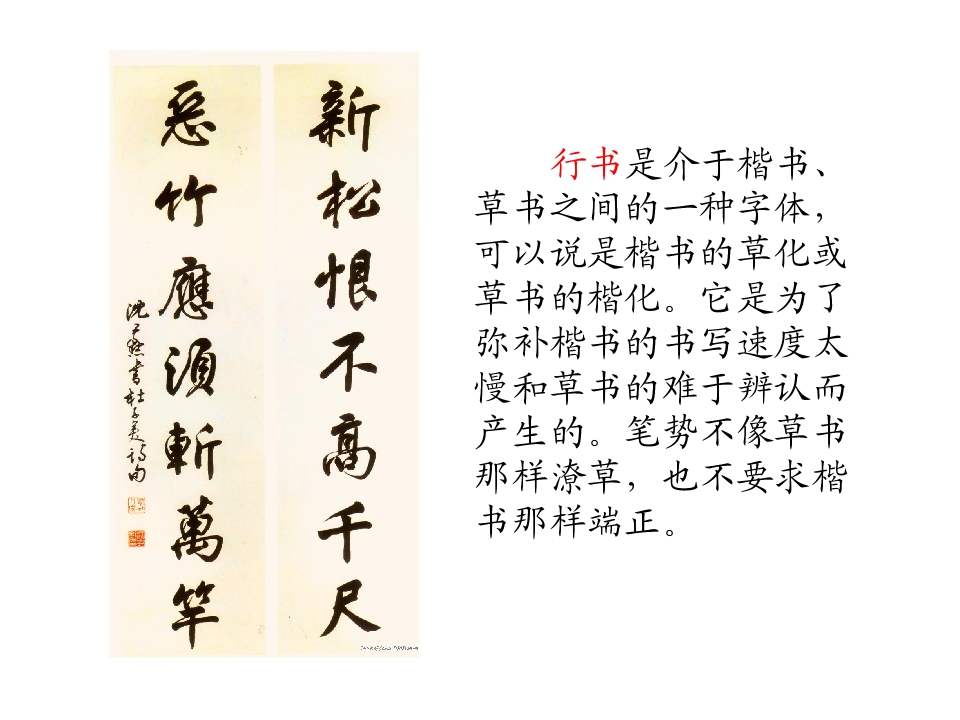 新松恨不高千尺
惡竹應須斬萬竿
沈尹默書杜子美詩句
行书是介于楷书、
草书之间的一种字体，
可以说是楷书的草化或
草书的楷化。它是为了
弥补楷书的书写速度太
慢和草书的难于辨认而
产生的。笔势不像草书
那样潦草，也不要求楷
书那样端正。